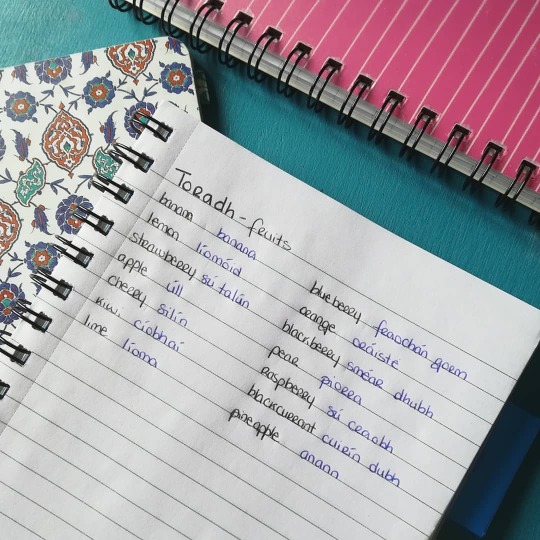 Toradh - fruits
banana banana
lemon líomóid
strawberry sú talún
apple úll
cherry silín
kiwi cíobhaí
lime líoma
blueberry fraochán gorm
orange oráiste
blackberry sméar dhubh
pear piorra
raspberry sú craobh
blackcurrant cuirín dubh
pineapple anann